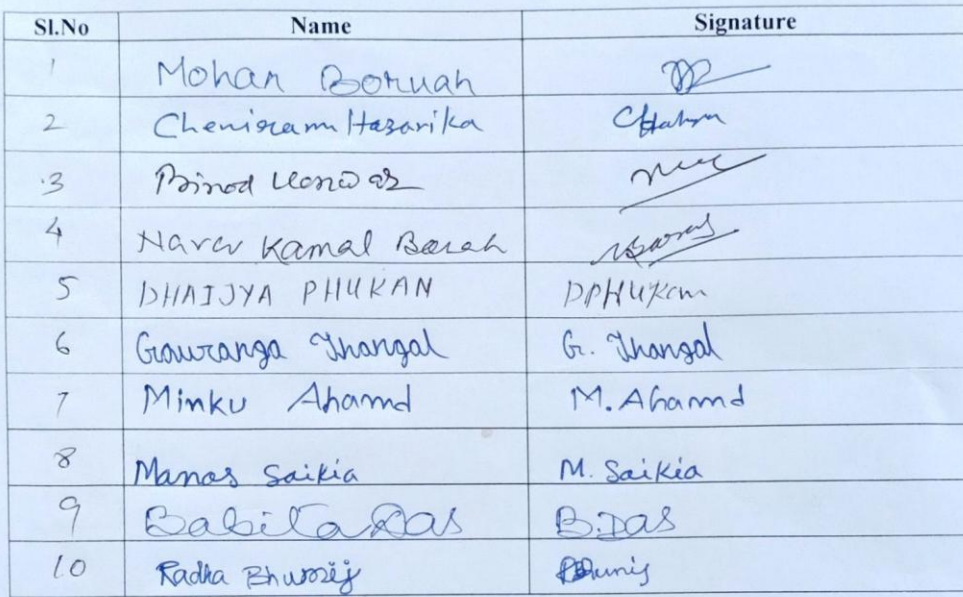 Sl.No Name Signature
1 Mohan Boruah
2 Cheniram Hazarika
3 Binod Konwar
4 Naren Kamal Borah
5 DHAIJYA PHUKAN DPHUKan
6 Gouranga Thangal G. Thangal
7 Minku Ahamd M. Ahamd
8 Manas Saikia M. Saikia
9 Babita Das B. Das
10 Radha Bhumij